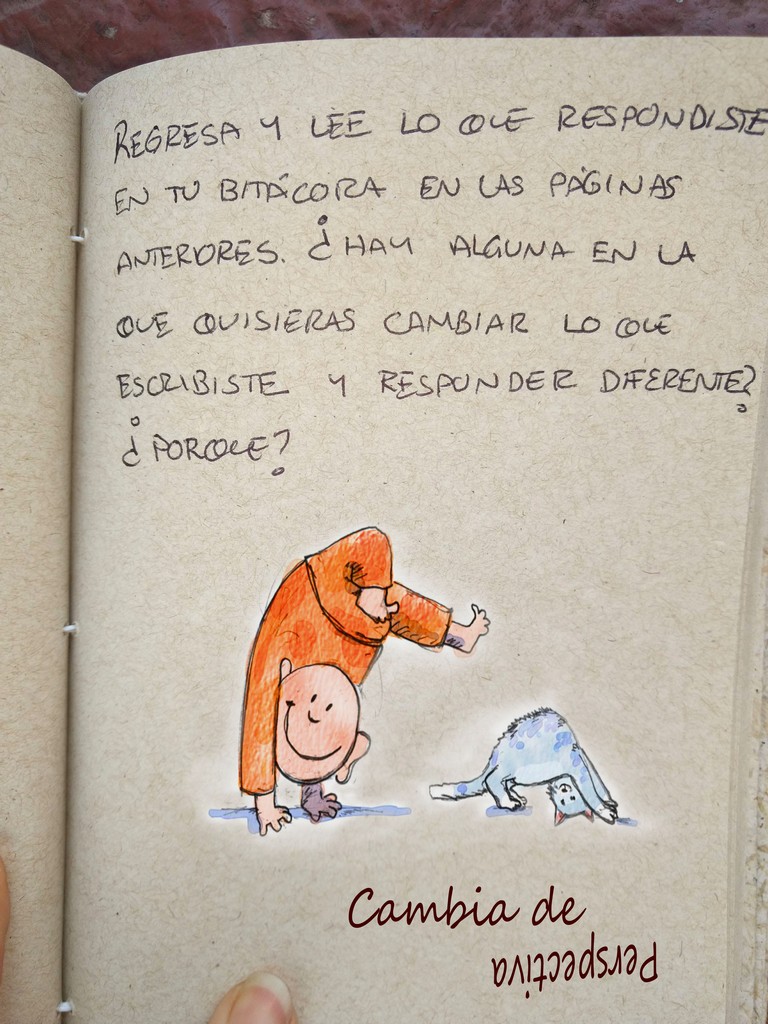 REGRESA Y LEE LO QUE RESPONDISTE
EN TU BITÁCORA EN LAS PÁGINAS
ANTERIORES. ¿HAY ALGUNA EN LA
QUE QUISIERAS CAMBIAR LO QUE
ESCRIBISTE Y RESPONDER DIFERENTE?
¿PORQUE?
Cambia de
Perspectiva